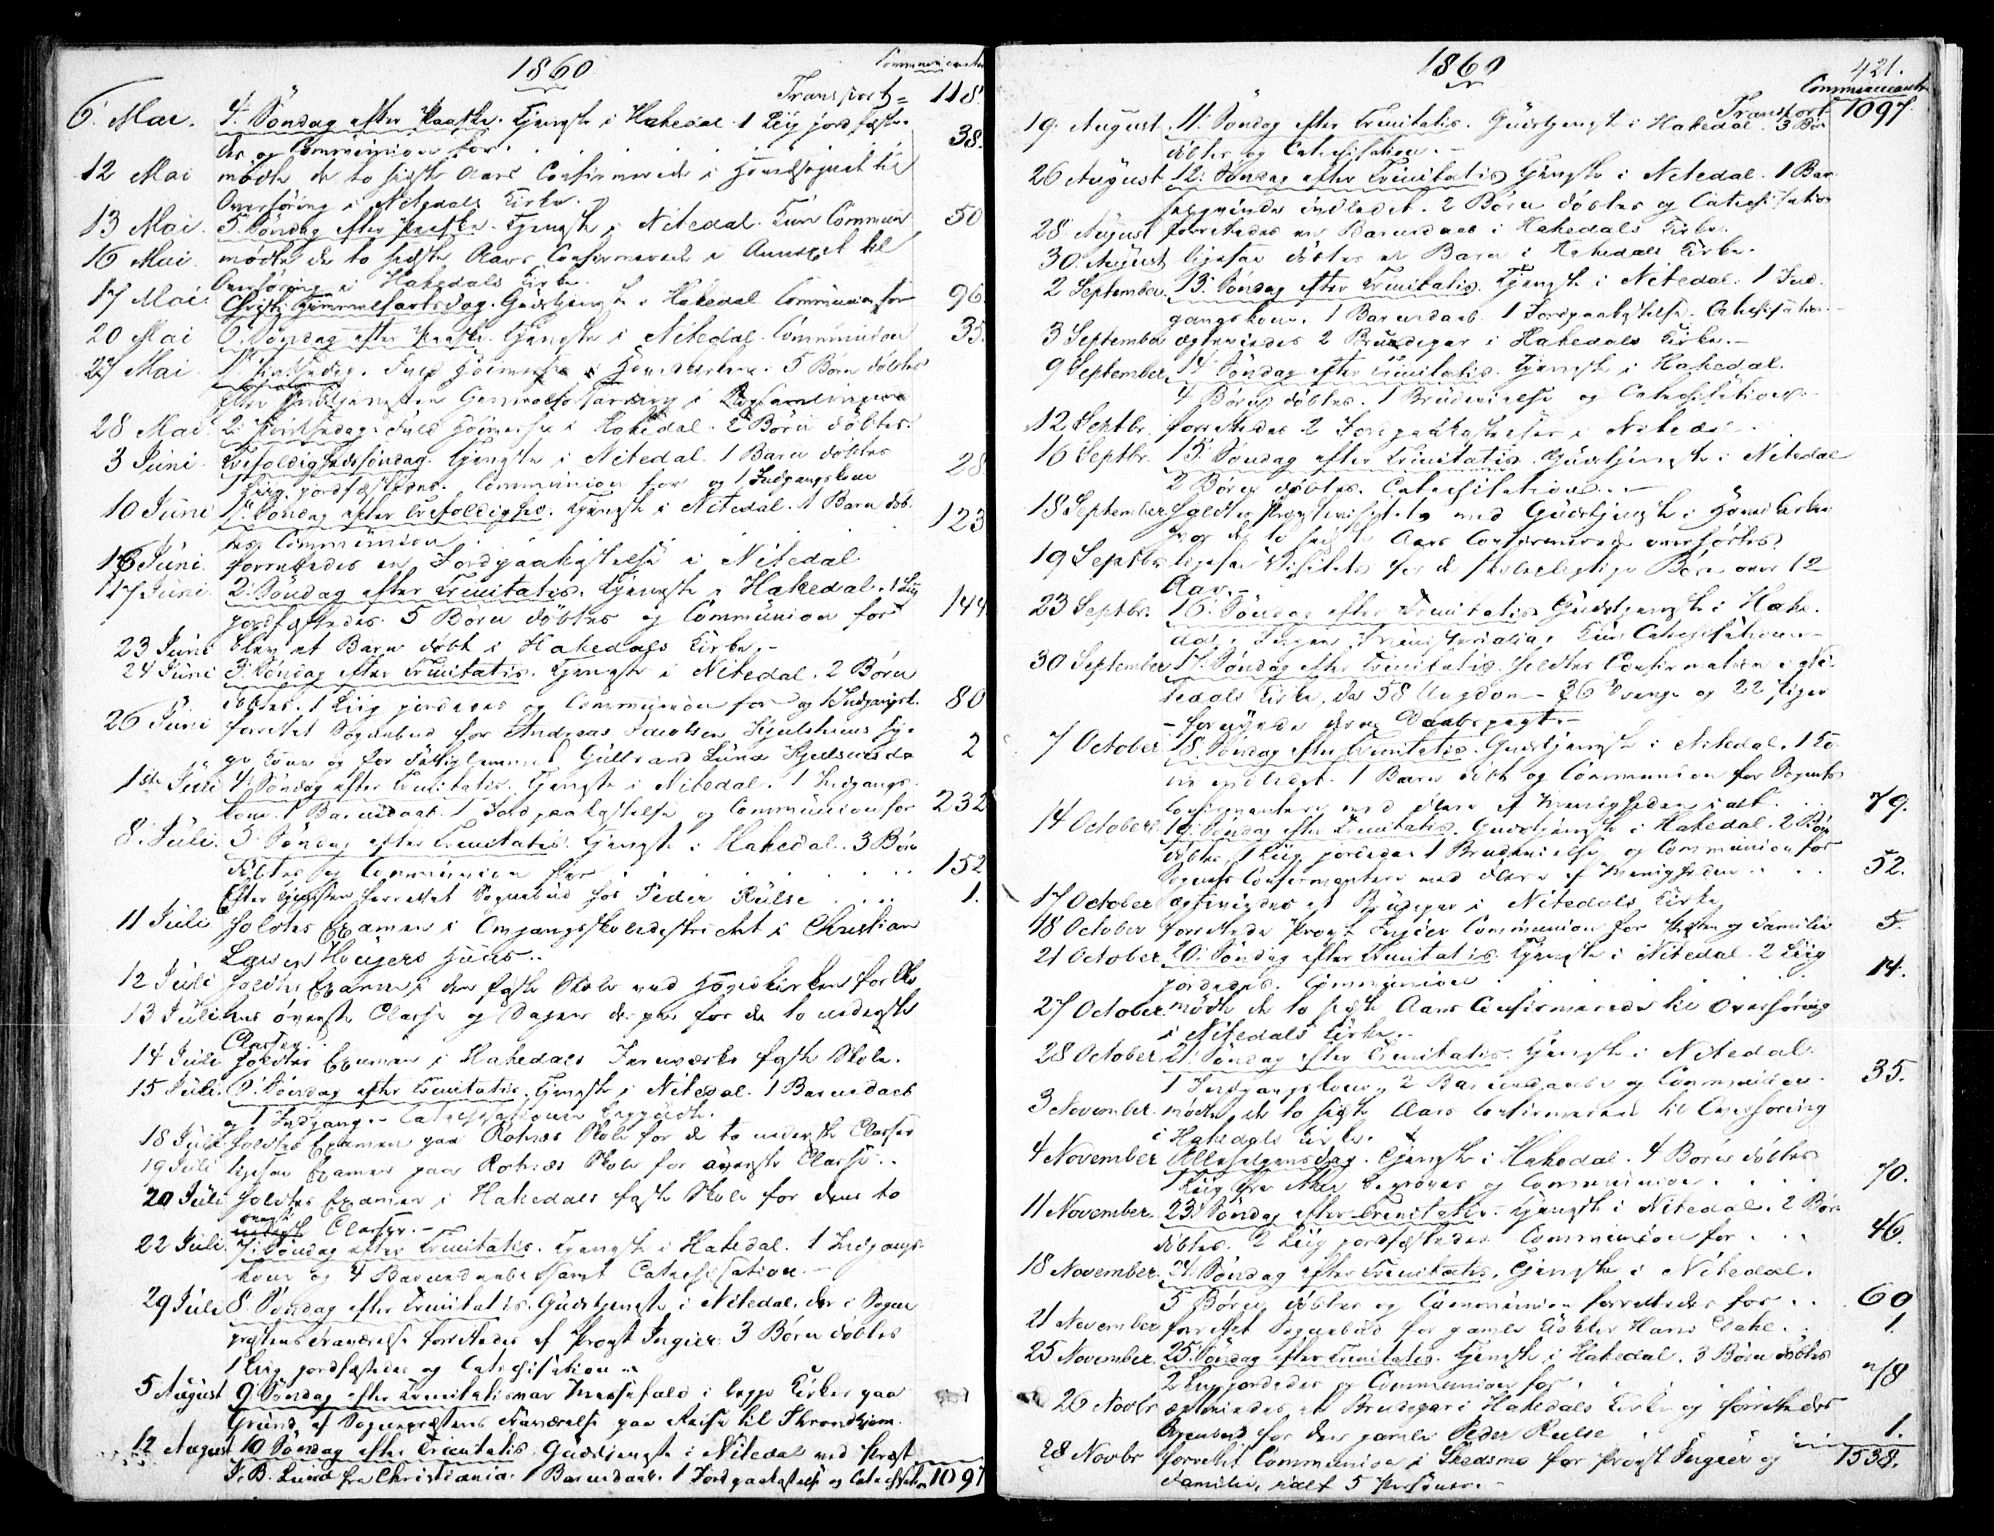 1860
Communicanter
Transport = 118.
6 Mai. 4. Söndag efter Paaske. Tjeneste i Hakedal. 1 Liig jordfæste-
des og Communion for . . . . 38.
12 Mai mödte de to sidste Aars Confirmerede i Hovedsognet til
Overhöring i Nitedals Kirke.
13 Mai. 5. Söndag efter Paaske. Tjeneste i Nitedal. Kun Commun 50
16 Mai. mödte de to sidste Aars Confirmerede i Annexet til
Overhöring i Hakedals Kirke.
17 Mai. Christi Himmelfartsdag. Gudstjeneste i Hakedal Communion for 96.
20 Mai 6. Söndag efter Paaske. Tjeneste i Nitedal. Communion 35.
27 Mai. 1. Pintsedag. Fuld Höimesse i Hovedkirken. 5 Börn döbtes
efter Gudstjenesten
28 Mai. 2. Pintsedag. Fuld Höimesse i Hakedal. 2 Börn döbtes.
3 Juni. Trefoldighedssöndag. Tjeneste i Nitedal. 1 Barn döbtes
1 Liig jordfæstedes. Communion for og 1 Indgangskone 28
10 Juni 1. Söndag efter Trefoldighed. Tjeneste i Nitedal. 1 Barn döb-
tes Communion . . 123
16 Juni. forrettedes en Jordpaakastelse i Nitedal
17 Juni 2. Söndag efter Trinitatis. Tjeneste i Hakedal. 1 Liig
jordfæstedes. 5 Börn döbtes og Communion for 144
23 Juni blev et Barn döbt i Hakedals Kirke.
24 Juni 3. Söndag efter Trinitatis. Tjeneste i Nitedal. 2 Börn
döbtes. 1 Liig jordedes og Communion for og 1 Indgangsk. 80
26 Juni forrettet Sognebud for Andreas Jacobsen sy-
ge Kone og for Gulbrand Lunds 2
1ste Juli 4. Söndag efter Trinitatis. Tjeneste i Nitedal. 1 Indgangs-
kone. 1 Barnedaab. 1 Jordpaakastelse og Communion for 232
8. Juli. 5. Söndag efter Trinitatis. Tjeneste i Hakedal. 3 Börn
döbtes og Communion for . . . . 152
Efter Tjenesten forrettet Sognebud hos Peder Rulse . . . 1.
11 Juli holdtes Examen i Omgangsskoledistrictet i Christian
Larsen Houjers Huus.
12 Juli holdtes Examen i den faste Skole ved Hovedkirken for Sko-
13 Juli lens överste Classe og Dagen derpaa for de to nederste
Classer.
14 Juli holdtes Examen i Hakedals Jernværks faste Skole.
15 Juli. 6. Söndag efter Trinitatis. Tjeneste i Nitedal. 1 Barnedaab
og 1 Indgang. Catechisationen begyndte.
18 Juli holdtes Examen paa Rotnæs Skole for de to nederste Classer
19 Juli ligesaa Examen paa Rotnæs Skole for överste Classe.
20 Juli holdtes Examen i Hakedals faste Skole for dens to
överste Classer.
22 Juli. 7. Söndag efter Trinitatis. Tjeneste i Hakedal. 1 Indgangs-
kone og 4 Barnedaabe samt Catechisation.
29 Juli 8. Söndag efter Trinitatis. Gudstjeneste i Nitedal, der i Sogne-
præstens Fraværelse forrettedes af Provst Ingier. 3 Börn döbtes
1 Liig jordfæstedes og Catechisation.
5 August 9. Söndag efter Trinitatis var Messefald i begge Kirker paa
Grund af Sognepræstens Fraværelse paa Reise til Throndhjem.
12 August 10 Söndag efter Trinitatis. Gudstjeneste i Nitedal ved Præst
J. B. Lund fra Christiania. 1 Barnedaab. 1 Jordpaakastelse og Catechisation 1097
1860
421.
Communicanter
Transport 1097.
19. August 11. Söndag efter Trinitatis. Gudstjeneste i Hakedal. 3 Börn
döbtes og Catechisation.
26 August 12. Söndag efter Trinitatis Tjeneste i Nitedal. 1 Bar-
selqvinde indledet. 2 Börn döbtes og Catechisation
28. August forrettedes en Barnedaab i Hakedals Kirke.
30. August ligesaa döbtes et Barn i Hakedals Kirke.
2 September 13. Söndag efter Trinitatis. Tjeneste i Nitedal. 1 Ind-
gangskone. 1 Barnedaab. 1 Jordpaakastelse. Catechisation.
3 September ægteviedes 2 Brudepar i Hakedals Kirke.
9 September. 14. Söndag efter Trinitatis. Tjeneste i Hakedal.
4 Börn döbtes. 1 Brudevielse og Catechisation.
12 Septbr. forrettedes 2 Jordpaakastelser i Nitedal.
16 Septbr. 15. Söndag efter Trinitatis. Gudstjeneste i Nitedal
2 Börn döbtes. Catechisation.
18 September. holdtes Provstevisitats med Gudstjeneste i Hovedkirken
hvor de to sidste Aars Confirmerede overhörtes.
19 Septbr. ligesaa Visitats for de skolepligtige Börn over 12
Aar.
23 Septbr. 16. Söndag efter Trinitatis Gudstjeneste i Hake-
dal. Ingen Ministerialia, kun Catechisation.
30 September 17. Söndag efter Trinitatis. holdtes Confirmation i Ni-
tedals Kirke, da 58 Ungdom - 36 Drenge og 22 Piger
- fornyede deres Daabspagt.
7 October 18. Söndag efter Trinitatis. Gudstjeneste i Nitedal. 1 Ko-
ne indledet. 1 Barn döbt og Communion for Sognets
Confirmanter med flere af Menigheden ialt . . 79.
14 October. 19. Söndag efter Trinitatis. Gudstjeneste i Hakedal. 2 Börn
döbtes, 1 Liig jordedes 1 Brudevielse og Communion for
Sognets Confirmanter med flere af Menigheden . . . 52.
17 October ægteviedes et Brudepar i Nitedals Kirke
18 October forrettede Provst Ingier Communion for Præsten og Familie 5.
21 October 20. Söndag efter Trinitatis. Tjeneste i Nitedal. 2 Liig
jordedes. Communion . . . . 14.
27 October mödte de to sidste Aars Confirmerede til Overhöring
i Nitedals Kirke.
28 October. 21. Söndag efter Trinitatis. Tjeneste i Nitedal.
1 Indgangskone, 2 Barnedaabe og Communion. 35.
3 November. mödte de to sidste Aars Confirmerede til Overhöring
i Hakedals Kirke.
4 November Allehelgensdag. Tjeneste i Hakedal. 4 Börn döbtes
1 Liig fra begroves og Communion . . . . 70.
11 November. 23. Söndag efter Trinitatis. Tjeneste i Nitedal. 2 Börn
döbtes. 2 Liig jordfæstedes. Communion for . . . 46.
18 November. 24. Söndag efter Trinitatis. Tjeneste i Nitedal.
5 Börn döbtes og Communion forrettedes for . . 60
21 November forrettet Sognebud for gamle Hans Dahl . . 1.
25 November. 25. Söndag efter Trinitatis. Tjeneste i Hakedal. 3 Börn döbtes
2 Liig jordedes og Communion for . . . 78
26 Novbr ægteviedes et Brudepar i Hakedals Kirke og forrettedes
Sognebud for den gamle Peder Rulse . . 1.
28 Novbr forrettet Communion i Skedsmo for Provst Ingier og 1538.
Familie, ialt 5 Personer.